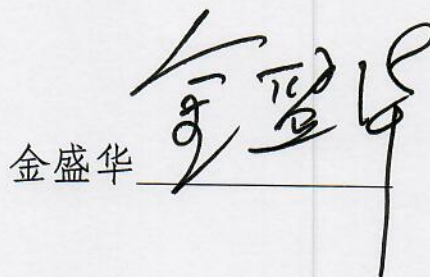 金盛华 金盛华